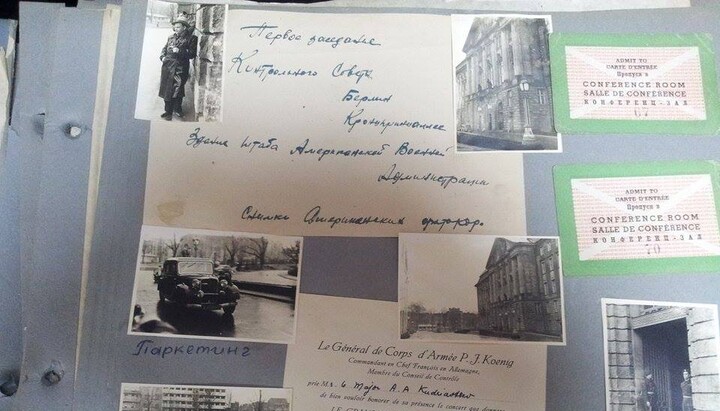 Первое заседание
Контрольного Совета
Берлин
Кронпринцаллее
Здание штаба Американской Военной
Администрации
Снимки Американских фотокор.
ADMIT TO
CARTE D'ENTRÉE
Пропуск в
CONFERENCE ROOM
SALLE DE CONFÉRENCE
КОНФЕРЕНЦ-ЗАЛ
67
ADMIT TO
CARTE D'ENTRÉE
Пропуск в
CONFERENCE ROOM
SALLE DE CONFÉRENCE
КОНФЕРЕНЦ-ЗАЛ
70
Паркетинг
Le Général de Corps d'Armée P.-J. Koenig
Commandant en Chef Français en Allemagne,
Membre du Conseil de Contrôle
prie M. le Major A. A.
de bien vouloir honorer de sa présence le concert que